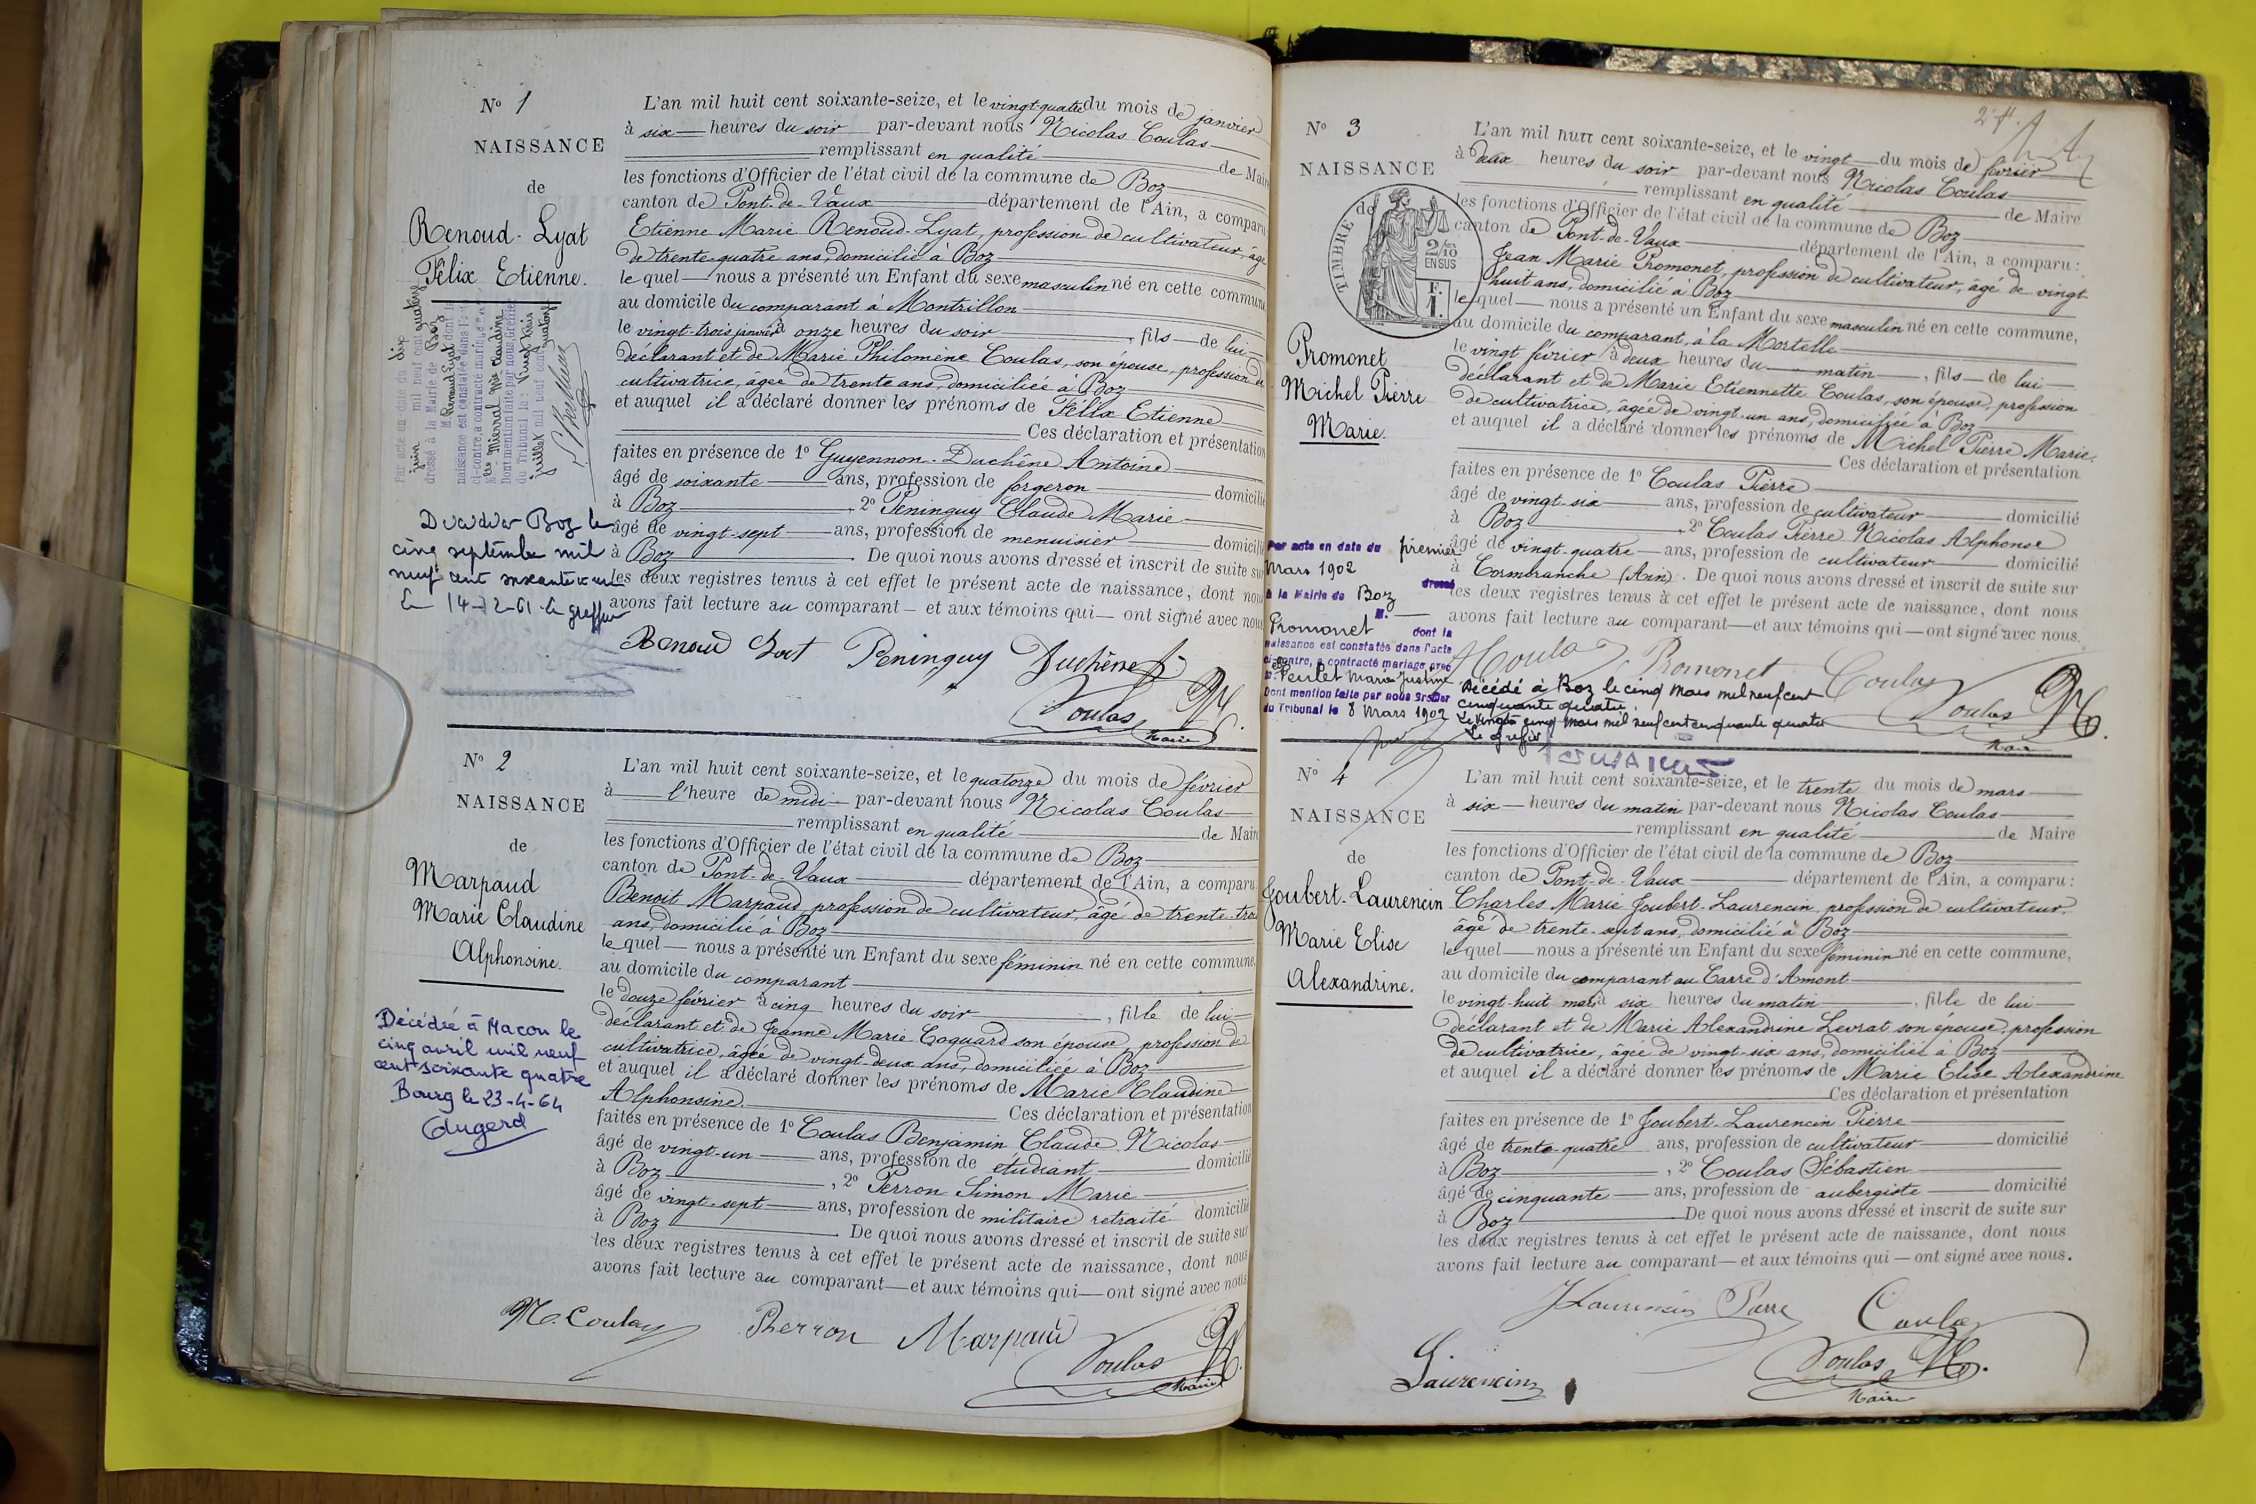 N° 1
NAISSANCE
de
Renoud-Lyat
Félix Etienne.
Par acte en date du dix
juin mil neuf cent quatorze
dressé à la Mairie de Boz
M. Renoud Lyat dont la
naissance est constatée dans l'acte
ci-contre, a contracté mariage avec
Mlle Mierral Mie Claudine
Dont mention faite par nous, Greffier
du Tribunal le: Vingt trois
juillet mil neuf cent quatorze
Décédé à Boz le
cinq septembre mil
neuf cent soixante et un
Le 14-12-61 le greffier
L'an mil huit cent soixante-seize, et le vingt-quatre du mois de janvier
à six heures du soir par-devant nous Nicolas Coulas
remplissant en qualité de Maire
les fonctions d'Officier de l'état civil de la commune de Boz
canton de Pont-de-Vaux département de l'Ain, a comparu
Etienne Marie Renoud-Lyat, profession de cultivateur, âgé
de trente-quatre ans, domicilié à Boz
le quel nous a présenté un Enfant du sexe masculin né en cette commune
au domicile du comparant à Montrillon
le vingt-trois janvier à onze heures du soir, fils de lui
déclarant et de Marie Philomène Coulas, son épouse, profession de
cultivatrice, âgée de trente ans, domiciliée à Boz
et auquel il a déclaré donner les prénoms de Félix Etienne
Ces déclaration et présentation
faites en présence de 1° Guyennon-Duchêne Antoine
âgé de soixante ans, profession de forgeron domicilié
à Boz 2° Peninguy Claude Marie
âgé de vingt-sept ans, profession de menuisier domicilié
à Boz De quoi nous avons dressé et inscrit de suite sur
les deux registres tenus à cet effet le présent acte de naissance, dont nous
avons fait lecture au comparant et aux témoins qui ont signé avec nous
Renoud Lyat Peninguy Duchêne
Coulas N.
Maire
N° 2
NAISSANCE
de
Marpaud
Marie Claudine
Alphonsine.
Décédée à Macon le
cinq avril mil neuf
cent soixante quatre
Bourg le 23-4-64
L'an mil huit cent soixante-seize, et le quatorze du mois de février
à l'heure de midi par-devant nous Nicolas Coulas
remplissant en qualité de Maire
les fonctions d'Officier de l'état civil de la commune de Boz
canton de Pont-de-Vaux département de l'Ain, a comparu
Benoit Marpaud, profession de cultivateur, âgé de trente-trois
ans, domicilié à Boz
le quel nous a présenté un Enfant du sexe féminin né en cette commune,
au domicile du comparant
le douze février à cinq heures du soir, fille de lui
déclarant et de Jeanne Marie Coquard son épouse, profession de
cultivatrice, âgée de vingt-deux ans, domiciliée à Boz
et auquel il a déclaré donner les prénoms de Marie Claudine
Alphonsine. Ces déclaration et présentation
faites en présence de 1° Coulas Benjamin Claude Nicolas
âgé de vingt-un ans, profession de étudiant domicilié
à Boz, 2° Perron Simon Marie
âgé de vingt-sept ans, profession de militaire retraité domicilié
à Boz De quoi nous avons dressé et inscrit de suite sur
les deux registres tenus à cet effet le présent acte de naissance, dont nous
avons fait lecture au comparant et aux témoins qui ont signé avec nous
N. Coulas Perron Marpaud
Coulas N.
Maire
N° 3
NAISSANCE
de
TIMBRE
2/10
EN SUS
Promonet
Michel Pierre
Marie.
Par acte en date du premier
Mars 1902 dressé
à la Mairie de Boz
M.
Promonet dont la
naissance est constatée dans l'acte
ci-contre, a contracté mariage avec
Marie Justine
Dont mention faite par nous Greffier
du Tribunal le 8 Mars 1902
2 f.
L'an mil huit cent soixante-seize, et le vingt du mois de février
à deux heures du soir par-devant nous Nicolas Coulas
remplissant en qualité de Maire
les fonctions d'Officier de l'état civil de la commune de Boz
canton de Pont-de-Vaux département de l'Ain, a comparu:
Jean Marie Promonet, profession de cultivateur, âgé de vingt-
huit ans, domicilié à Boz
le quel nous a présenté un Enfant du sexe masculin né en cette commune,
au domicile du comparant, à la Mortelle
le vingt février à deux heures du matin, fils de lui
déclarant et de Marie Etiennette Coulas, son épouse, profession
de cultivatrice, âgée de vingt-un ans, domiciliée à Boz
et auquel il a déclaré donner les prénoms de Michel Pierre Marie.
Ces déclaration et présentation
faites en présence de 1° Coulas Pierre
âgé de vingt-six ans, profession de cultivateur domicilié
à Boz, 2° Coulas Pierre Nicolas Alphonse
âgé de vingt-quatre ans, profession de cultivateur domicilié
à Cormoranche (Ain). De quoi nous avons dressé et inscrit de suite sur
les deux registres tenus à cet effet le présent acte de naissance, dont nous
avons fait lecture au comparant et aux témoins qui ont signé avec nous.
Coulas Promonet Coulas
Coulas N.
Maire
Décédé à Boz le cinq Mars mil neuf cent
cinquante quatre.
Le vingt cinq Mars mil neuf cent cinquante quatre
Le Greffier
N° 4
NAISSANCE
de
Joubert-Laurencin
Marie Elise
Alexandrine.
L'an mil huit cent soixante-seize, et le trente du mois de mars
à six heures du matin par-devant nous Nicolas Coulas
remplissant en qualité de Maire
les fonctions d'Officier de l'état civil de la commune de Boz
canton de Pont-de-Vaux département de l'Ain, a comparu:
Charles Marie Joubert-Laurencin, profession de cultivateur,
âgé de trente-sept ans, domicilié à Boz
le quel nous a présenté un Enfant du sexe féminin né en cette commune,
au domicile du comparant au Carre d'Amont
le vingt-huit mars à six heures du matin, fille de lui
déclarant et de Marie Alexandrine Levrat son épouse, profession
de cultivatrice, âgée de vingt-six ans, domiciliée à Boz
et auquel il a déclaré donner les prénoms de Marie Elise Alexandrine
Ces déclaration et présentation
faites en présence de 1° Joubert-Laurencin Pierre
âgé de trente-quatre ans, profession de cultivateur domicilié
à Boz, 2° Coulas Sébastien
âgé de cinquante ans, profession de aubergiste domicilié
à Boz De quoi nous avons dressé et inscrit de suite sur
les deux registres tenus à cet effet le présent acte de naissance, dont nous
avons fait lecture au comparant et aux témoins qui ont signé avec nous.
J Laurencin Pierre Coulas
Laurencin Coulas N.
Maire